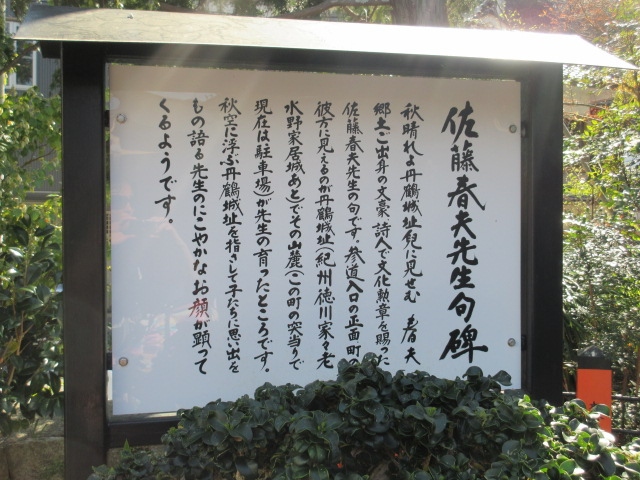 佐藤春夫先生句碑
秋晴れよ丹鶴城址児に見せむ 春夫
郷土ご出身の文豪・詩人で文化勲章を賜った
佐藤春夫先生の句です。参道入口の正面町の
彼方に見えるのが丹鶴城址(紀州徳川家々老
水野家居城あと)でその山麓(この町の突当りで
現在は駐車場)が先生の育ったところです。
秋空に浮ぶ丹鶴城址を指さして子たちに思い出を
もの語る先生のにこやかなお顔が顕って
くるようです。